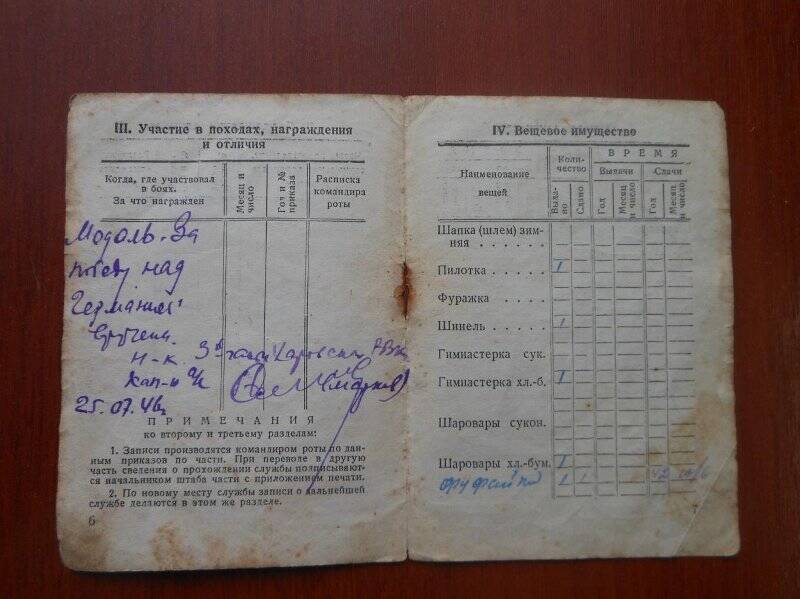 III. Участие в походах, награждения
и отличия
Когда, где участвовал
в боях.
За что награжден
Месяц и
число
Год и №
приказа
Расписка
командира
роты
Модоль-За
победу над
Германией
вручена.
Н-к. 3й части
Кап-н
25.07.46г
ПРИМЕЧАНИЯ
ко второму и третьему разделам:
1. Записи производятся командиром роты по дан-
ным приказов по части. При переводе в другую
часть сведения о прохождении службы подписывают-
ся начальником штаба части с приложением печати.
2. По новому месту службы записи о дальнейшей
службе делаются в этом же разделе.
6
IV. Вещевое имущество
Наименование
вещей
Коли-
чество
ВРЕМЯ
Выдачи
Сдачи
Выда-
но
Сдано
Год
Месяц
и число
Год
Месяц
и число
Шапка (шлем) зим-
няя . . . . . .
Пилотка . . . . 1
Фуражка . . . .
Шинель . . . . 1
Гимнастерка сук.
Гимнастерка хл.-б. 1
Шаровары сукон.
Шаровары хл.-бум. 1
1 1 42